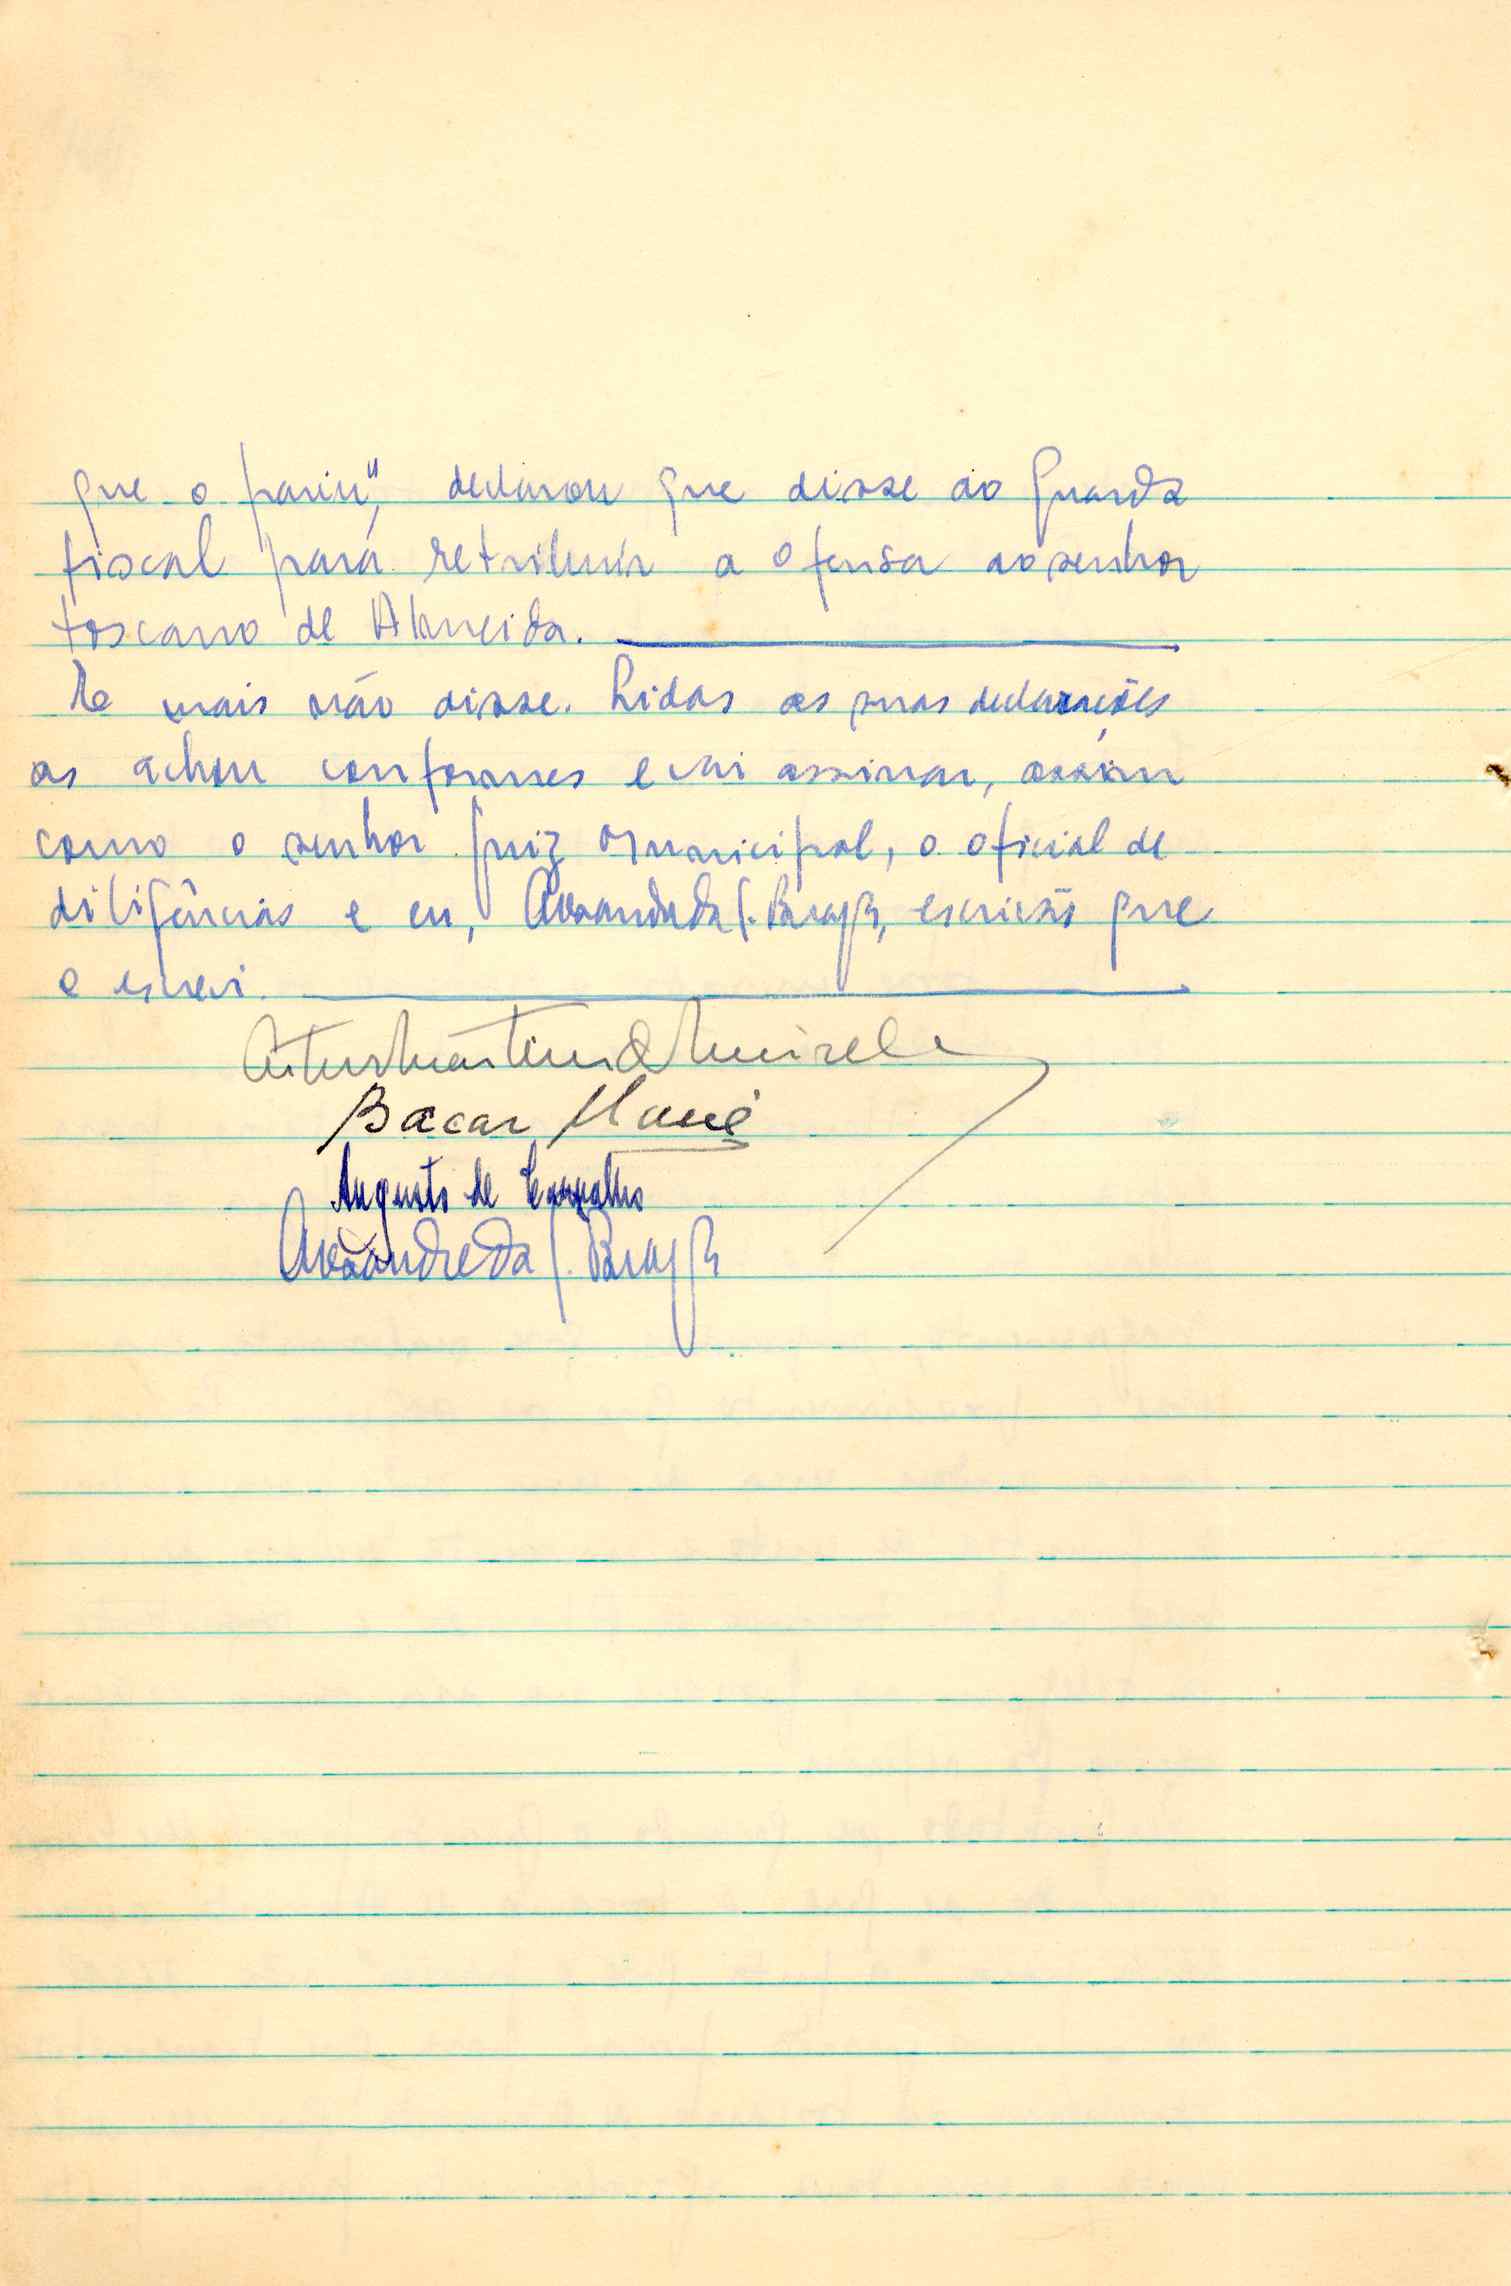 que o pariu", declarou que disse ao Guarda
fiscal para retribuir a ofensa ao senhor
toscano de Almeida.
E mais não disse. Lidas as suas declarações
as achou conformes e vai assinar, assim
como o senhor Juiz Municipal, o oficial de
diligências e eu, Alexandre da S. Braga, escrivão que
o escrevi.
Artur Martins de Meireles
Bacar Mané
Augusto de Carvalho
Alexandre da S. Braga